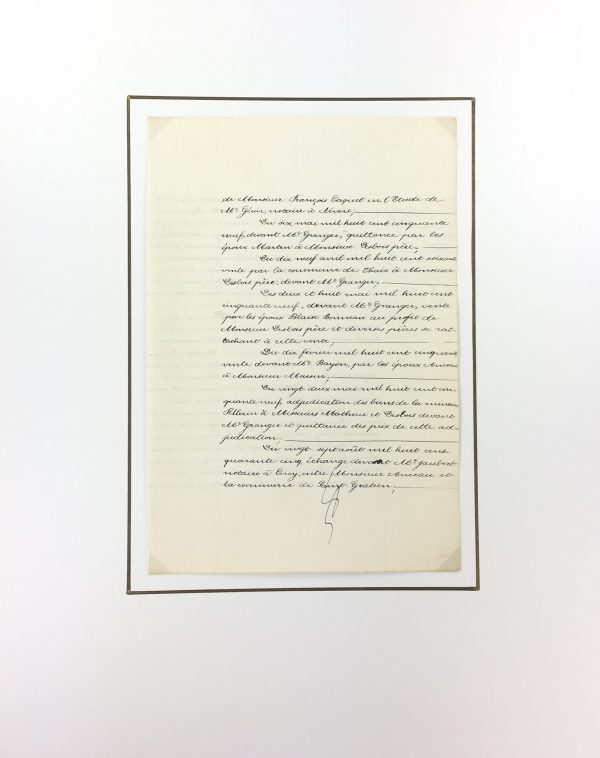 de Monsieur François Caquet en l'Etude de
Me Guin, notaire à Nevers,
Du six mai mil huit cent cinquante
neuf, devant Me Granger, quittance par les
époux Martin à Monsieur Lesbois père,
Du dix neuf avril mil huit cent soixante
vente par la commune de à Monsieur
Lesbois père, devant Me Granger,
Des deux et huit mai mil huit cent
cinquante neuf, devant Me Granger, vente
par les époux Blaise Bonneau au profit de
Monsieur Lesbois père et diverses pièces se rat-
tachant à cette vente,
Du dix février mil huit cent cinquante
vente devant Me Bazon, par les époux
à Monsieur Masson,
Du vingt deux mai mil huit cent cin
quante neuf adjudication des biens de la mineure
à Messieurs Mathieu et Lesbois devant
Me Granger et quittance des prix de cette ad-
judication,
Du vingt sept août mil huit cent
quarante cinq, échange devant Me Jaubert
notaire à entre Monsieur et
la commune de Saint Gratien,